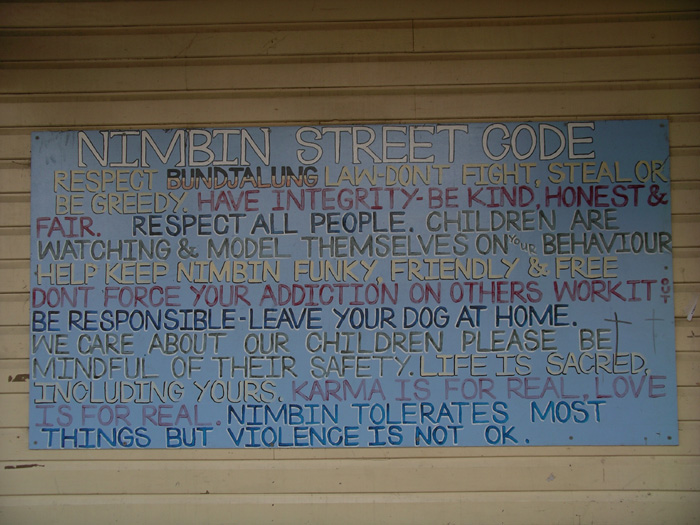 NIMBIN STREET CODE
RESPECT BUNDJALUNG LAW-DON'T FIGHT, STEAL OR
BE GREEDY. HAVE INTEGRITY-BE KIND, HONEST &
FAIR. RESPECT ALL PEOPLE. CHILDREN ARE
WATCHING & MODEL THEMSELVES ON YOUR BEHAVIOUR
HELP KEEP NIMBIN FUNKY, FRIENDLY & FREE
DONT FORCE YOUR ADDICTION ON OTHERS WORK IT OUT
BE RESPONSIBLE-LEAVE YOUR DOG AT HOME.
WE CARE ABOUT OUR CHILDREN PLEASE BE
MINDFUL OF THEIR SAFETY. LIFE IS SACRED,
INCLUDING YOURS. KARMA IS FOR REAL, LOVE
IS FOR REAL. NIMBIN TOLERATES MOST
THINGS BUT VIOLENCE IS NOT OK.